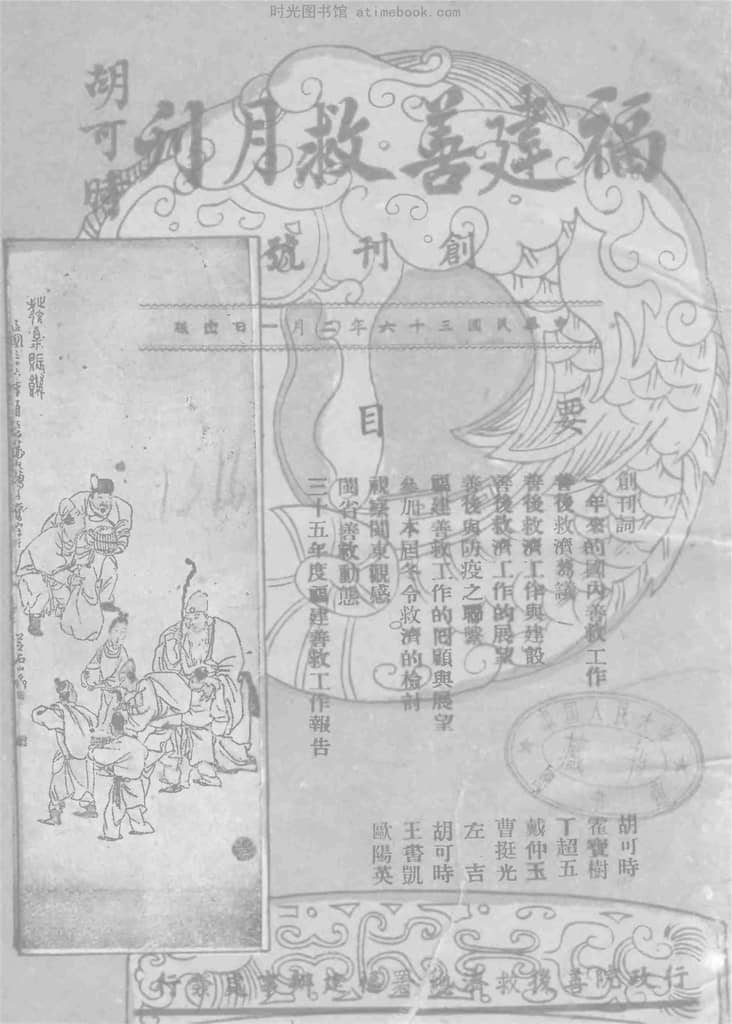 时光图书馆 atimebook.com
福建善救月刊
胡可時
創刊號
中華民國三十六年二月一日出版
要目
創刊詞
一年來的國內善救工作
善後救濟芻議
善後救濟工作與建設
善後救濟工作的展望
善後與防疫之聯繫
福建善救工作的回顧與展望
參加本屆冬令救濟的檢討
視察閩東觀感
閩省善救動態
三十五年度福建善救工作報告
胡可時
霍寶樹
丁超五
戴仲玉
曹挺光
左吉
胡可時
王書凱
歐陽英
行政院善後救濟總署福建辦事處發行